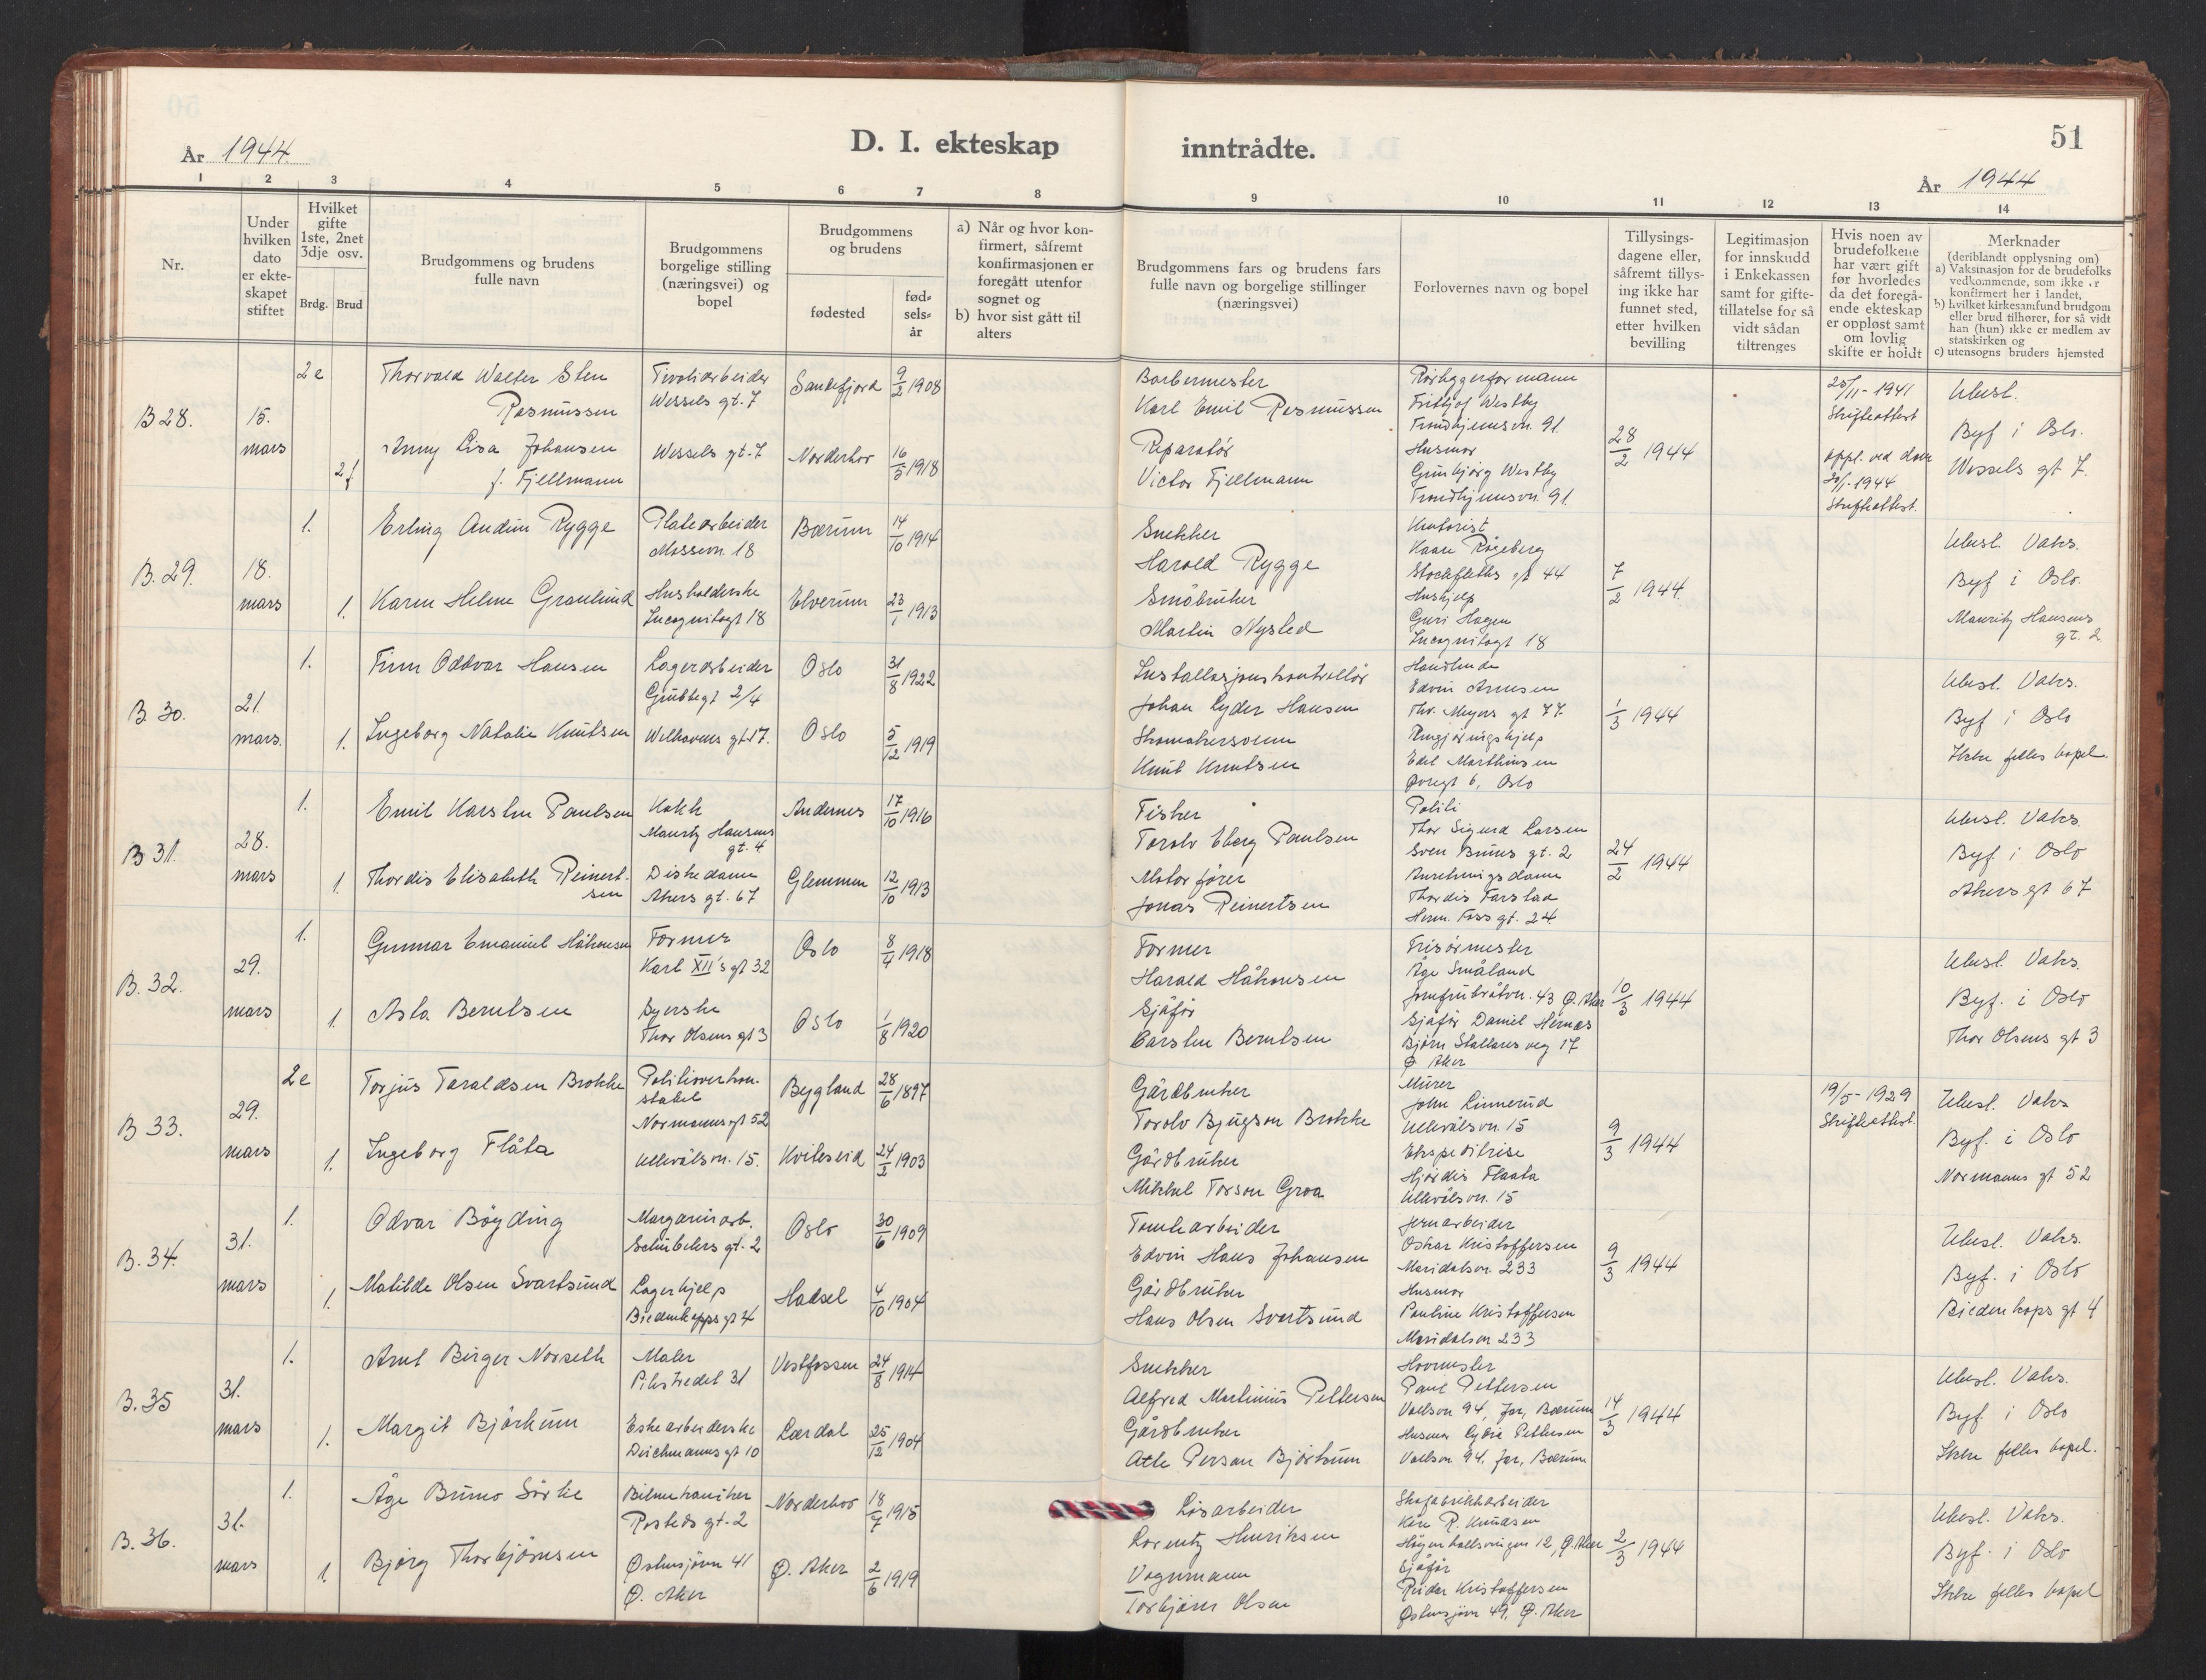 År 1944
D. I. ekteskap
inntrådte.
51
År 1944
1 2 3 4 5 6 7 8 9 10 11 12 13 14
Nr.
Under hvilken dato er ekteskapet stiftet
Hvilket gifte 1ste, 2net 3dje osv.
Brdg. Brud
Brudgommens og brudens fulle navn
Brudgommens borgelige stilling (næringsvei) og bopel
Brudgommens og brudens
fødested
fødselsår
a) Når og hvor konfirmert, såfremt konfirmasjonen er foregått utenfor sognet og
b) hvor sist gått til alters
Brudgommens fars og brudens fars fulle navn og borgelige stillinger (næringsvei)
Forlovernes navn og bopel
Tillysingsdagene eller, såfremt tillysing ikke har funnet sted, etter hvilken bevilling
Legitimasjon for innskudd i Enkekassen samt for giftetillatelse for så vidt sådan tiltrenges
Hvis noen av brudefolkene har vært gift før hvorledes da det foregående ekteskap er oppløst samt om lovlig skifte er holdt
Merknader
(deriblandt opplysning om)
a) Vaksinasjon for de brudefolks vedkommende, som ikke er konfirmert her i landet,
b) hvilket kirkesamfund brudgom eller brud tilhører, for så vidt han (hun) ikke er medlem av statskirken og
c) utensogns bruders hjemsted
B 28.
15. mars
2e
Thorvald Walter Sten Rasmussen
Tivoliarbeider
Wessels gt. 7
Sandefjord
9/2 1908
2 f
Anny Lisa Johansen
f. Fjellmann
Wessels gt. 7
Norderhov
16/5 1918
Barbermester
Karl Emil Rasmussen
Reparatør
Victor Fjellmann
Rørleggerformann
Fritjof Westby
Trondhjemsvn. 91
Husmor
Gunbjørg Westby
Trondhjemsvn. 91
28/2 1944
25/11-1941
Skifteattest
oppl. ved dom
20/1-1944
Skifteattest.
Ubesl.
Byf i Oslo.
Wessels gt 7.
B. 29.
18. mars
1.
Erling Audun Rygge
Platearbeider
Mossevn 18
Bærum
14/10 1914
1.
Karen Helene Granlund
Husholderske
Incognitogt 18
Elverum
23/1 1913
Snekker
Harald Rygge
Småbruker
Martin Nysted
Kaare Røgeberg
Stockfleths gt 44
Hushjelp
Guri Hagen
Incognitogt 18
7/2 1944.
Ubesl. Vaks.
Byf i Oslo.
Mauritz Hansens gt. 2
B 30.
21. mars.
1.
Finn Oddvar Hansen
Lagerarbeider
Grubbegt 2/4
Oslo
31/8 1922
1.
Ingeborg Natalie Knutsen
Welhavens gt 17.
Oslo
5/12 1919
Installasjonskontrollør
Johan Lyder Hansen
Skomakersvenn
Knut Knutsen
Handlende
Edvin Arnesen
Thv. Meyers gt 77
Rengjøringshjelp
Edel Marthinsen
Øvregt 6, Oslo
1/3 1944
Ubesl. Vaks.
Byf i Oslo
Ikke felles bopel.
B 31.
28. mars
1.
Emil Karsten Paulsen
Kokk
Mauritz Hansens gt. 4
Andenes
17/10 1916
1.
Thordis Elisabeth Reinertsen
Diskedame
Akers gt. 67
Glemmen
12/10 1913
Fisker
Torolv Eberg Paulsen
Motorfører
Jonas Reinertsen
Politi
Thor Sigurd Larsen
Sven Bruns gt. 2
Anretningsdame
Thordis Farstad
Herm. Foss gt. 24
24/2 1944
Ubesl. Vaks.
Byf. i Oslo
Akersgt 67
B. 32.
29. mars
1.
Gunnar Emanuel Håkonsen
Former
Karl XII's gt 32
Oslo
8/4 1918
1.
Asta Berntsen
Syerske
Thor Olsens gt 3
Oslo
1/8 1920
Former
Harald Håkonsen
Sjåfør
Carsten Berntsen
Frisørmester
Åge Småland
Jomfrubråtvn. 43 Ø. Aker
Sjåfør Daniel Hernæs
Bjørn Stallares veg 17
Ø Aker
10/3 1944
Ubesl. Vaks.
Byf. i Oslo
Thor Olsens gt 3
B 33.
29. mars
2e
Torjus Taraldsen Brokke
Politioverkonstabel
Normanns gt 52
Bygland
28/6 1897
1.
Ingeborg Flåta
Ullevålsvn. 15.
Kviteseid
24/2 1903
Gårdbruker
Torolv Bjugson Brokke
Gårdbruker
Mikkel Torson Groa
Murer
John Linnerud
Ullevålsvn 15
Ekspeditrise
Hjørdis Flaata
Ullevålsvn. 15
9/3 1944
19/5-1929
Skifteattest.
Ubesl. Vaks
Byf. i Oslo
Normanns gt 52
B. 34.
31. mars
1.
Odvar Bøyding
Margarinarb.
Schübelers gt. 2
Oslo
30/6 1909
1.
Matilde Olsen Svartsund
Lagerhjelp
Biedenkapps gt 4
Hadsel
4/10 1904
Tomtearbeider
Edvin Hans Johansen
Gårdbruker
Hans Olsen Svartsund
Jernarbeider
Oskar Kristoffersen
Maridalsvn 233
Husmor
Pauline Kristoffersen
Maridalsvn 233
9/3 1944
Ubesl. Vaks.
Byf. i Oslo
Biedenkaps gt 4
B. 35
31. mars
1.
Arnt Birger Norseth
Maler
Pilestredet 31
Vestfossen
24/8 1914
1.
Margit Bjørkum
Eskearbeiderske
Deichmanns gt 10
Lærdal
25/12 1904
Snekker
Alfred Martinius Pettersen
Gårdbruker
Atle Person Bjørkum
Hovmester
Paul Pettersen
Vallsvn 94, Jar, Bærum
Husmor Lydie Pettersen
Vallsvn 94. Jar, Bærum
14/3 1944
Ubesl. Vaks.
Byf. i Oslo
Ikke felles bopel.
B. 36.
31. mars
1.
Åge Bruno Sørlie
Bilmekaniker
Rosteds gt. 2
Norderhov
18/7 1915
1.
Bjørg Thorbjørnsen
Østensjøvn 41
Ø. Aker
Ø. Aker
2/6 1919
Løsarbeider
Lorentz Henriksen
Vognmann
Torbjørn Olsen
Skofabrikkarbeider
Kåre R. Knudsen
12, Ø. Aker
Sjåfør
Reidar Kristoffersen
Østensjøvn 49, Ø. Aker
2/3 1944
Ubesl. Vaks.
Byf. i Oslo
Ikke felles bopel